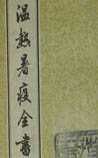 温热暑疫全書